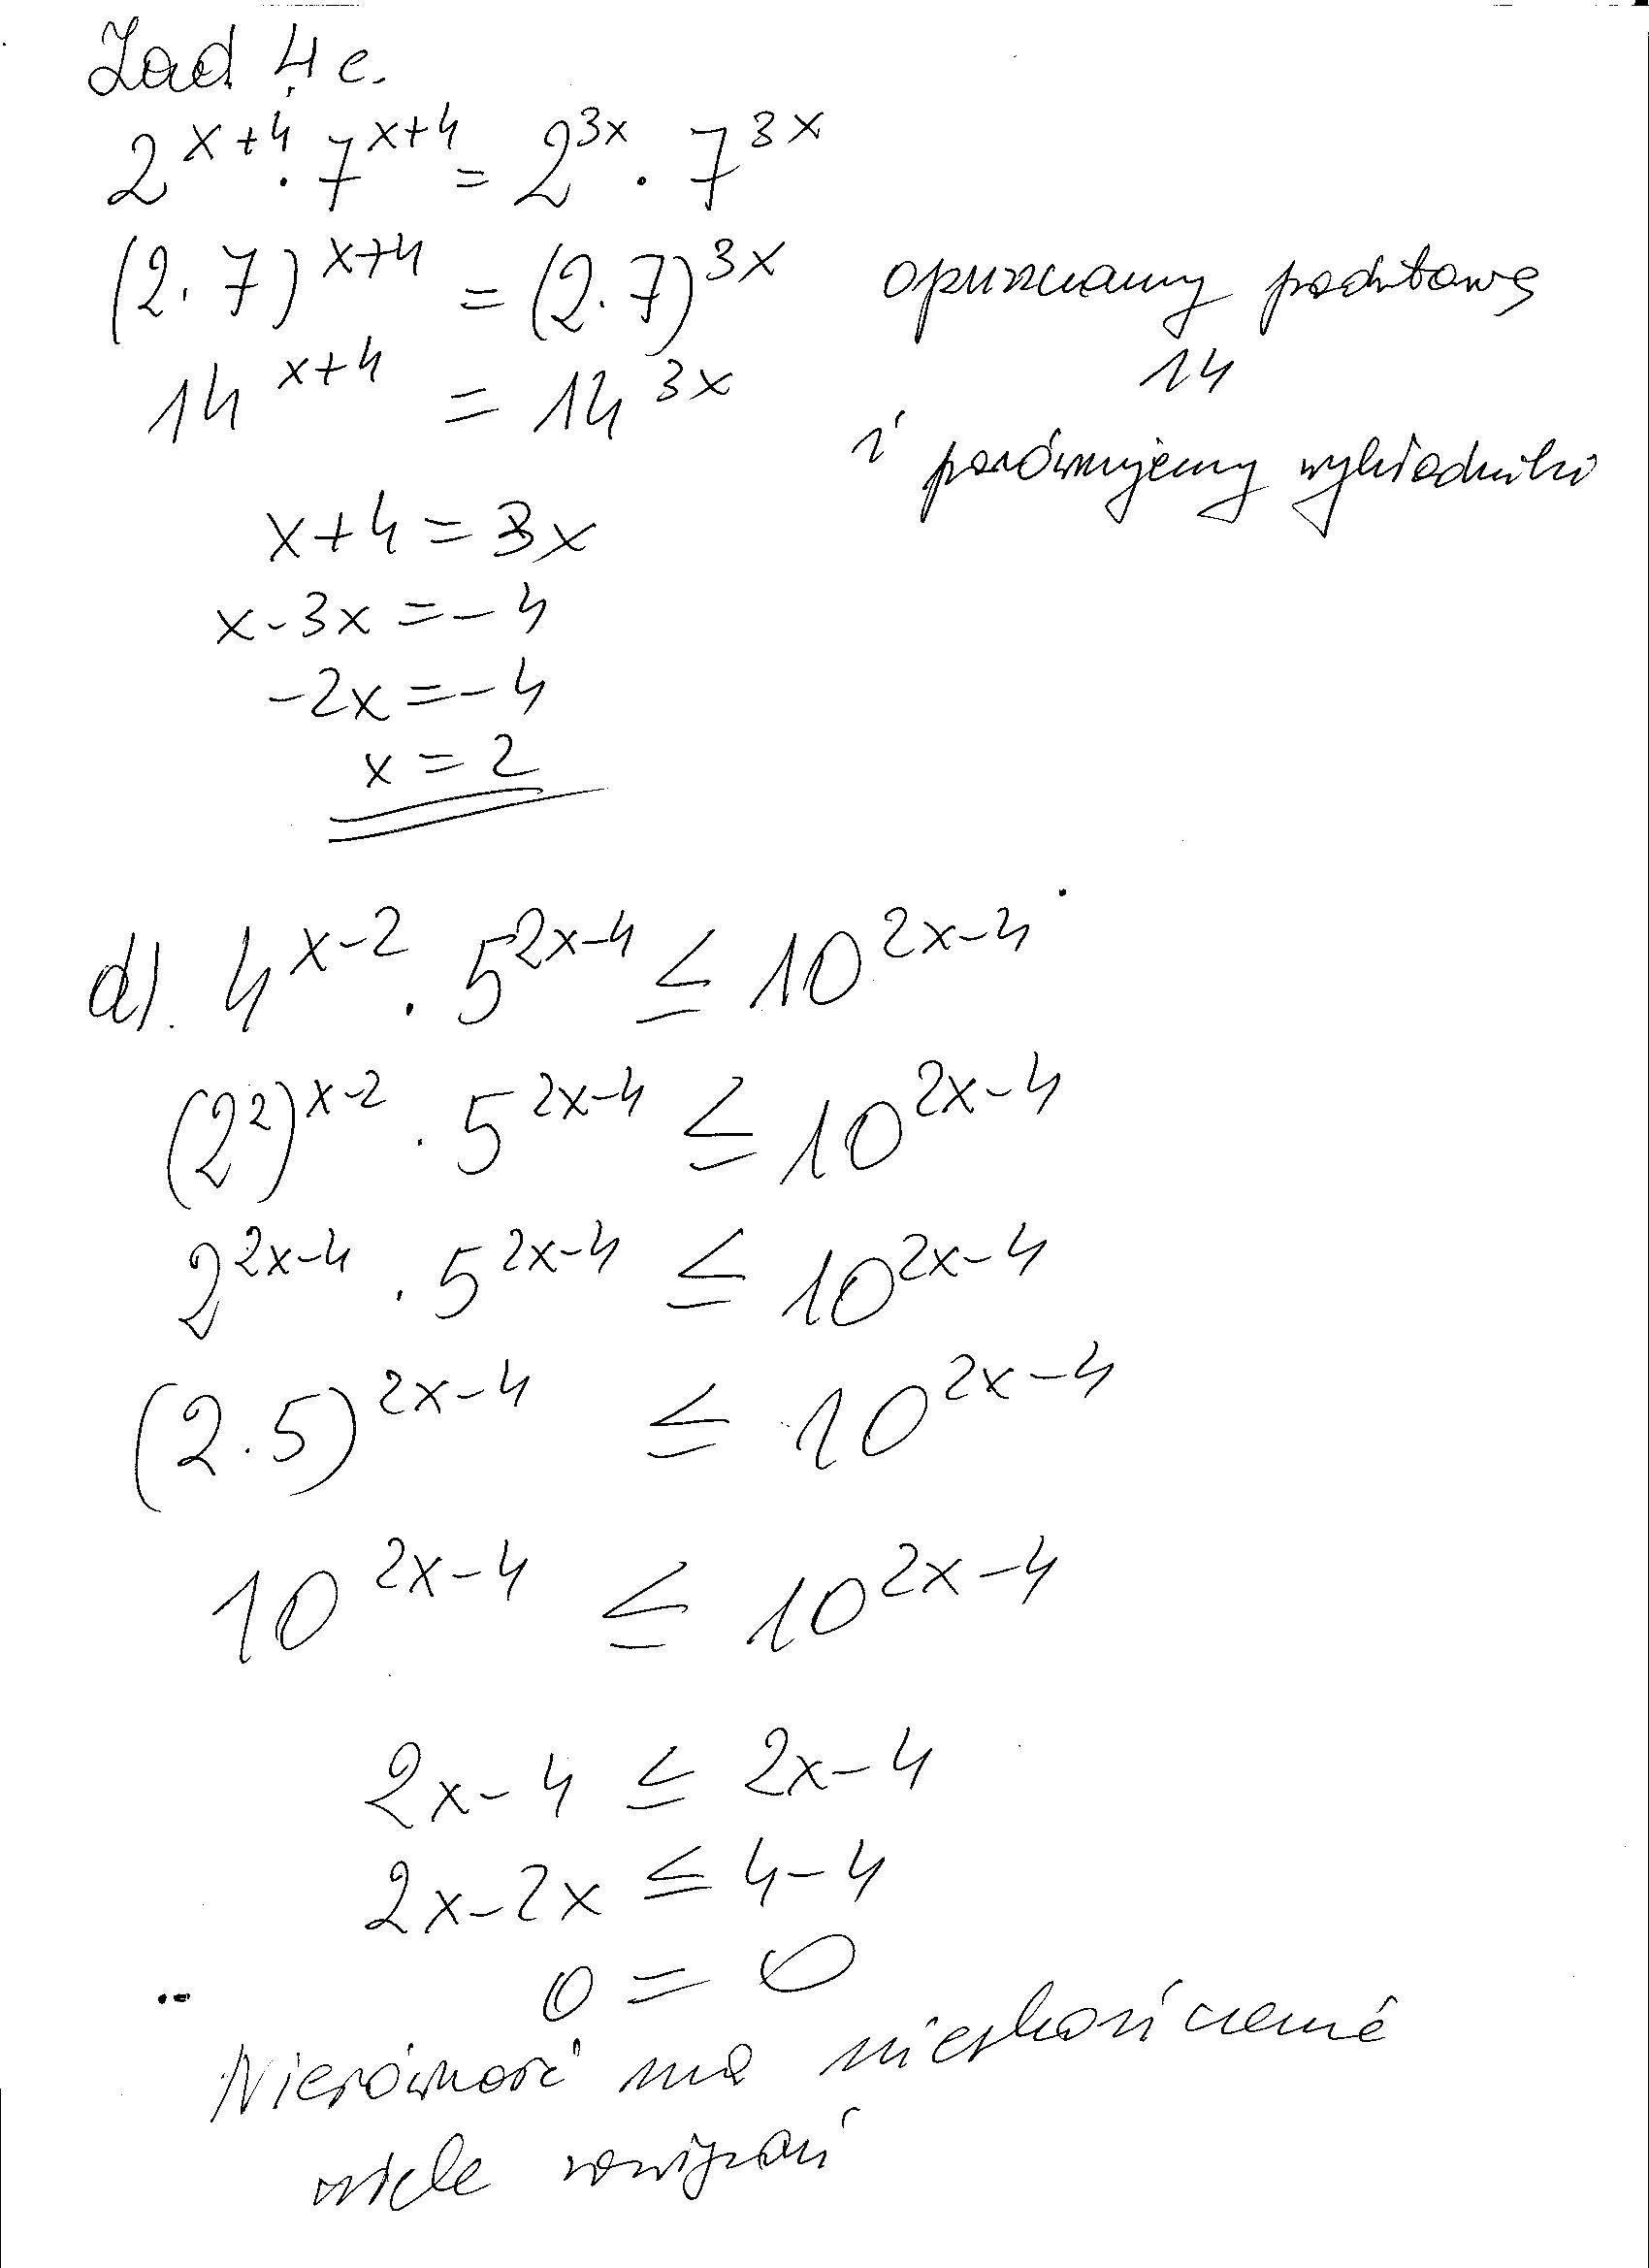 Zad 4 c.
2^{x+4} · 7^{x+4} = 2^{3x} · 7^{3x}
(2·7)^{x+4} = (2·7)^{3x} opuszczamy podstawę
14^{x+4} = 14^{3x} 14
i porównujemy wykładniki
x+4 = 3x
x-3x = -4
-2x = -4
x = 2
d). 4^{x-2} · 5^{2x-4} ≤ 10^{2x-4}
(2^2)^{x-2} · 5^{2x-4} ≤ 10^{2x-4}
2^{2x-4} · 5^{2x-4} ≤ 10^{2x-4}
(2·5)^{2x-4} ≤ 10^{2x-4}
10^{2x-4} ≤ 10^{2x-4}
2x-4 ≤ 2x-4
2x-2x ≤ 4-4
0 = 0
Nierówność ma nieskończenie
wiele rozwiązań